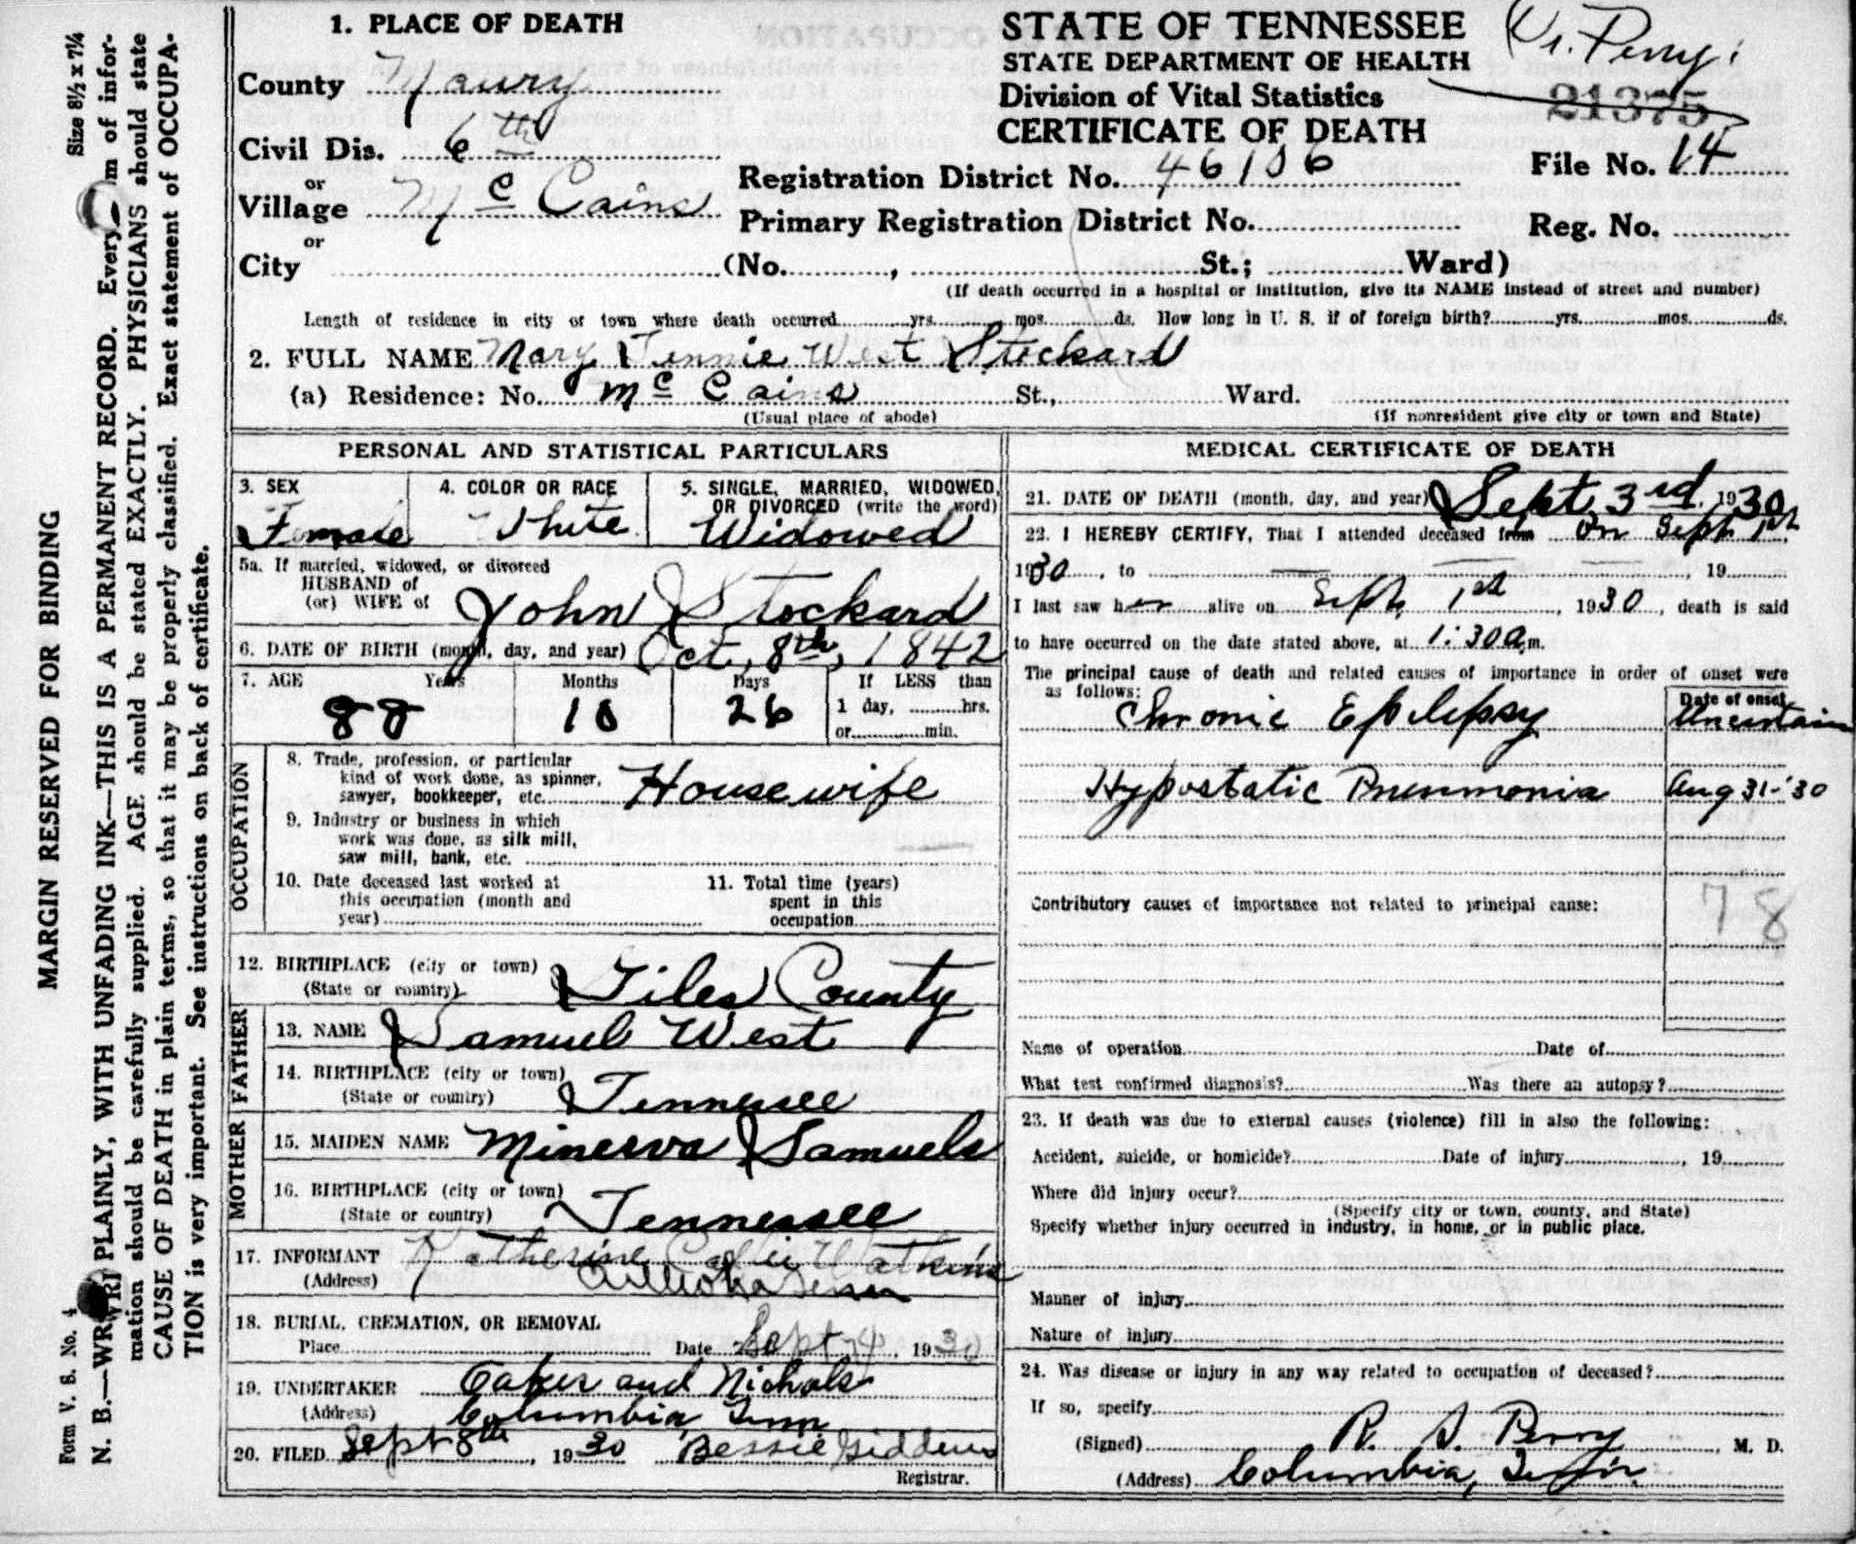 MARGIN RESERVED FOR BINDING
Form V. S. No. 4
Size 8½ x 7¼
N. B.—WRITE PLAINLY, WITH UNFADING INK—THIS IS A PERMANENT RECORD. Every item of infor-
mation should be carefully supplied. AGE should be stated EXACTLY. PHYSICIANS should state
CAUSE OF DEATH in plain terms, so that it may be properly classified. Exact statement of OCCUPA-
TION is very important. See instructions on back of certificate.
1. PLACE OF DEATH
County Maury
Civil Dis. 6th
or
Village McCains
or
City
STATE OF TENNESSEE
STATE DEPARTMENT OF HEALTH
Division of Vital Statistics
CERTIFICATE OF DEATH
Dr. Perry
21375
File No. 14
Registration District No. 46106
Primary Registration District No.
Reg. No.
(No. , St.; Ward)
(If death occurred in a hospital or institution, give its NAME instead of street and number)
Length of residence in city or town where death occurred yrs. mos. ds. How long in U. S. if of foreign birth? yrs. mos. ds.
2. FULL NAME Mary Tennie West Stockard
(a) Residence: No. McCains St., Ward.
(Usual place of abode) (If nonresident give city or town and State)
PERSONAL AND STATISTICAL PARTICULARS
3. SEX
Female
4. COLOR OR RACE
White
5. SINGLE, MARRIED, WIDOWED,
OR DIVORCED (write the word)
Widowed
5a. If married, widowed, or divorced
HUSBAND of
(or) WIFE of John Stockard
6. DATE OF BIRTH (month, day, and year) Oct, 8th, 1842
7. AGE Years Months Days If LESS than
88 10 26 1 day, hrs.
or min.
OCCUPATION
8. Trade, profession, or particular
kind of work done, as spinner,
sawyer, bookkeeper, etc. Housewife
9. Industry or business in which
work was done, as silk mill,
saw mill, bank, etc.
10. Date deceased last worked at
this occupation (month and
year)
11. Total time (years)
spent in this
occupation
12. BIRTHPLACE (city or town)
(State or country) Giles County
FATHER
13. NAME Samuel West
14. BIRTHPLACE (city or town)
(State or country) Tennessee
MOTHER
15. MAIDEN NAME Minerva Samuels
16. BIRTHPLACE (city or town)
(State or country) Tennessee
17. INFORMANT Katherine Watkins
(Address) Culleoka Tenn
18. BURIAL, CREMATION, OR REMOVAL
Place Date Sept 4, 1930
19. UNDERTAKER Oakes and Nichols
(Address) Columbia, Tenn.
20. FILED Sept 8th, 1930 Bessie Giddens
Registrar.
MEDICAL CERTIFICATE OF DEATH
21. DATE OF DEATH (month, day, and year) Sept, 3rd, 1930
22. I HEREBY CERTIFY, That I attended deceased from On Sept 1st
1930, to , 19
I last saw her alive on Sept, 1st, 1930, death is said
to have occurred on the date stated above, at 1:30 a.m.
The principal cause of death and related causes of importance in order of onset were
as follows: Date of onset
Chronic Epilepsy Uncertain
Hypostatic Pneumonia Aug 31-'30
Contributory causes of importance not related to principal cause:
78
Name of operation Date of
What test confirmed diagnosis? Was there an autopsy?
23. If death was due to external causes (violence) fill in also the following:
Accident, suicide, or homicide? Date of injury , 19
Where did injury occur?
(Specify city or town, county, and State)
Specify whether injury occurred in industry, in home, or in public place.
Manner of injury
Nature of injury
24. Was disease or injury in any way related to occupation of deceased?
If so, specify
(Signed) R. S. Perry, M. D.
(Address) Columbia, Tenn.